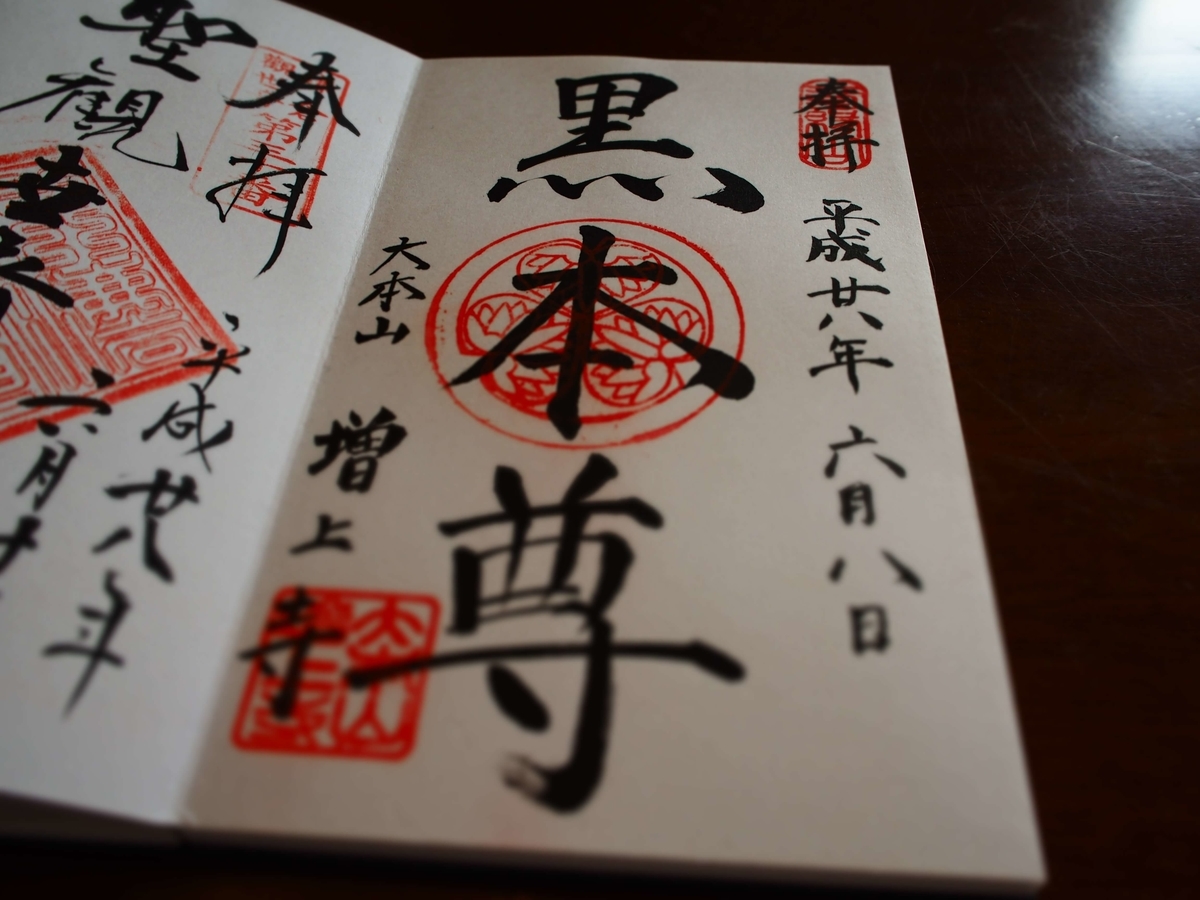 奉拝
平成廿六年 六月八日
黒本尊
大本山 増上寺
奉拝
平成廿六年
六月廿
聖観世音